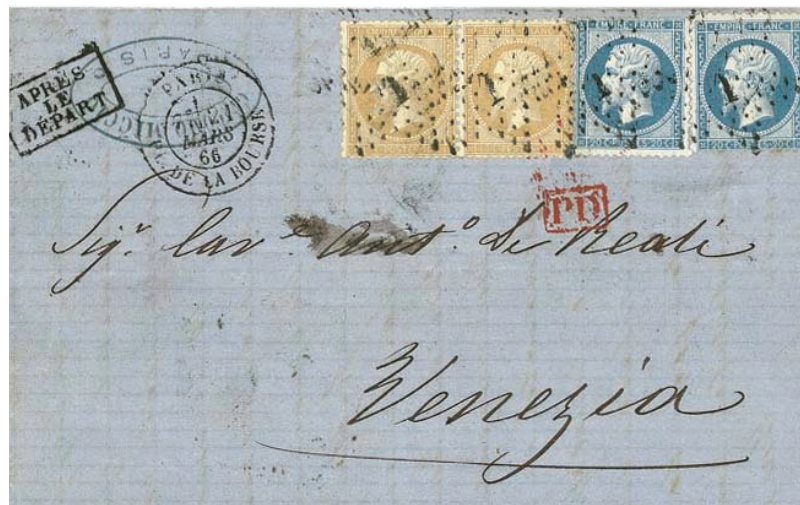 APRÈS
LE
DEPART
PARIS
PARIS
MARS
66
PL. DE LA BOURSE
EMPIRE FRANC
EMPIRE FRANC
1
1
1
1
20 C 20
PD
Sigr. Cave. Anto. de Reali
Venezia